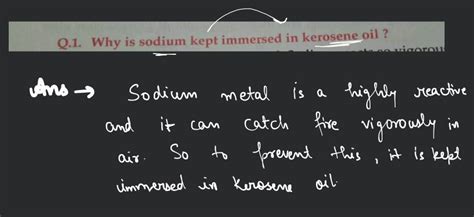 Q.1. Why is sodium kept immersed in kerosene oil ?
Ans → Sodium metal is a highly reactive
and it can catch fire vigorously in
air. So to prevent this, it is kept
immersed in Kerosene oil.